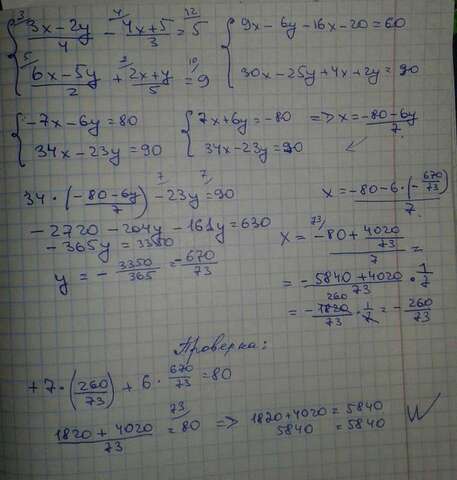 3 4 12
{ (3x-2y)/4 - (4x+5)/3 = 5
5 2 10
(6x-5y)/2 + (2x+y)/5 = 9
{ 9x-6y-16x-20=60
30x-25y+4x+2y=90
{ -7x-6y=80
34x-23y=90
{ 7x+6y=-80 => x=(-80-6y)/7
34x-23y=90
34·((-80-6y)/7) - 23y=90
7 7
-2720-204y-161y=630
-365y=3350
y = -3350/365 = -670/73
x=(-80-6·(-670/73))/7
73
x=(-80+4020/73)/7 =
= (-5840+4020)/73 · 1/7
260
= -1820/73 · 1/7 = -260/73
Проверка:
+7·(260/73) + 6·670/73=80
73
(1820+4020)/73 = 80 => 1820+4020=5840
5840 =5840